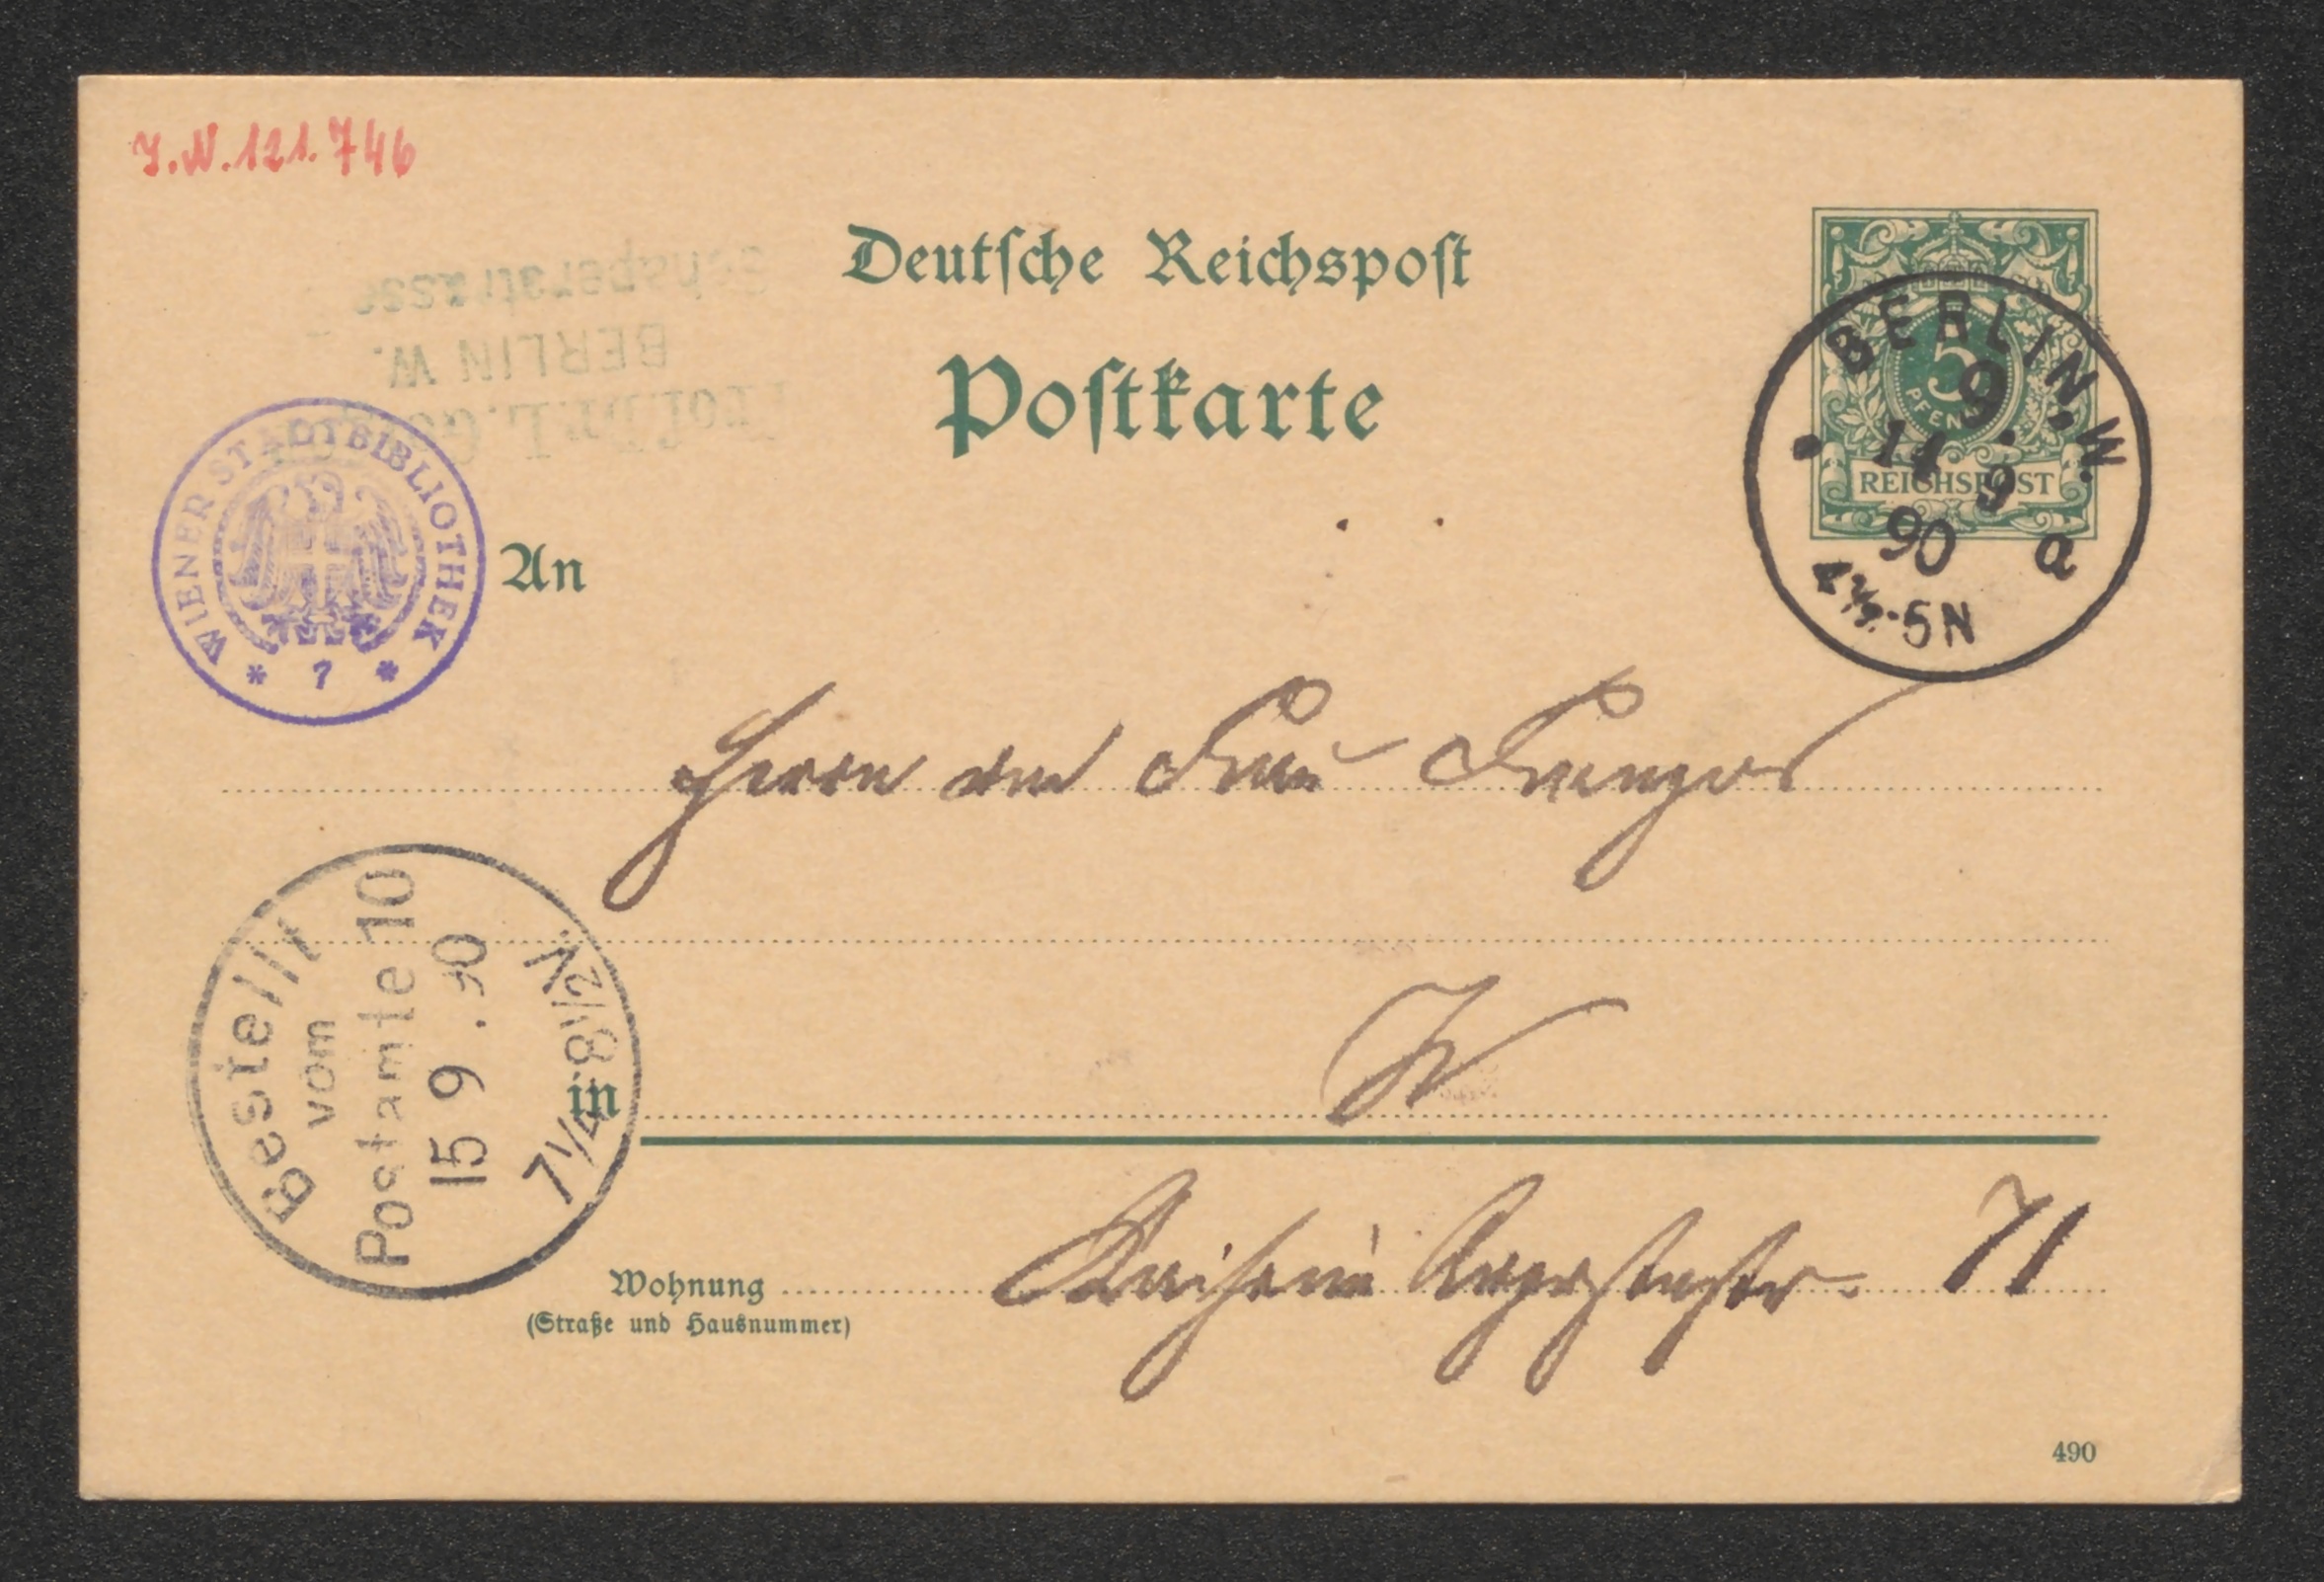 J.N. 121.746
Deutsche Reichspost
Postkarte
Schaperstrasse
BERLIN W.
Prof. Dr. L.
5
PFENNIG
REICHSPOST
BERLIN, W.
9
14 9
90
a
4½-5N
WIENER STADTBIBLIOTHEK
* 7 *
An
Herrn und Frau
Bestellt
vom
Postamte 10
15 9. 90
7¼-8½V
in
W
Wohnung
Kaiserin Augustastr. 71
(Straße und Hausnummer)
490